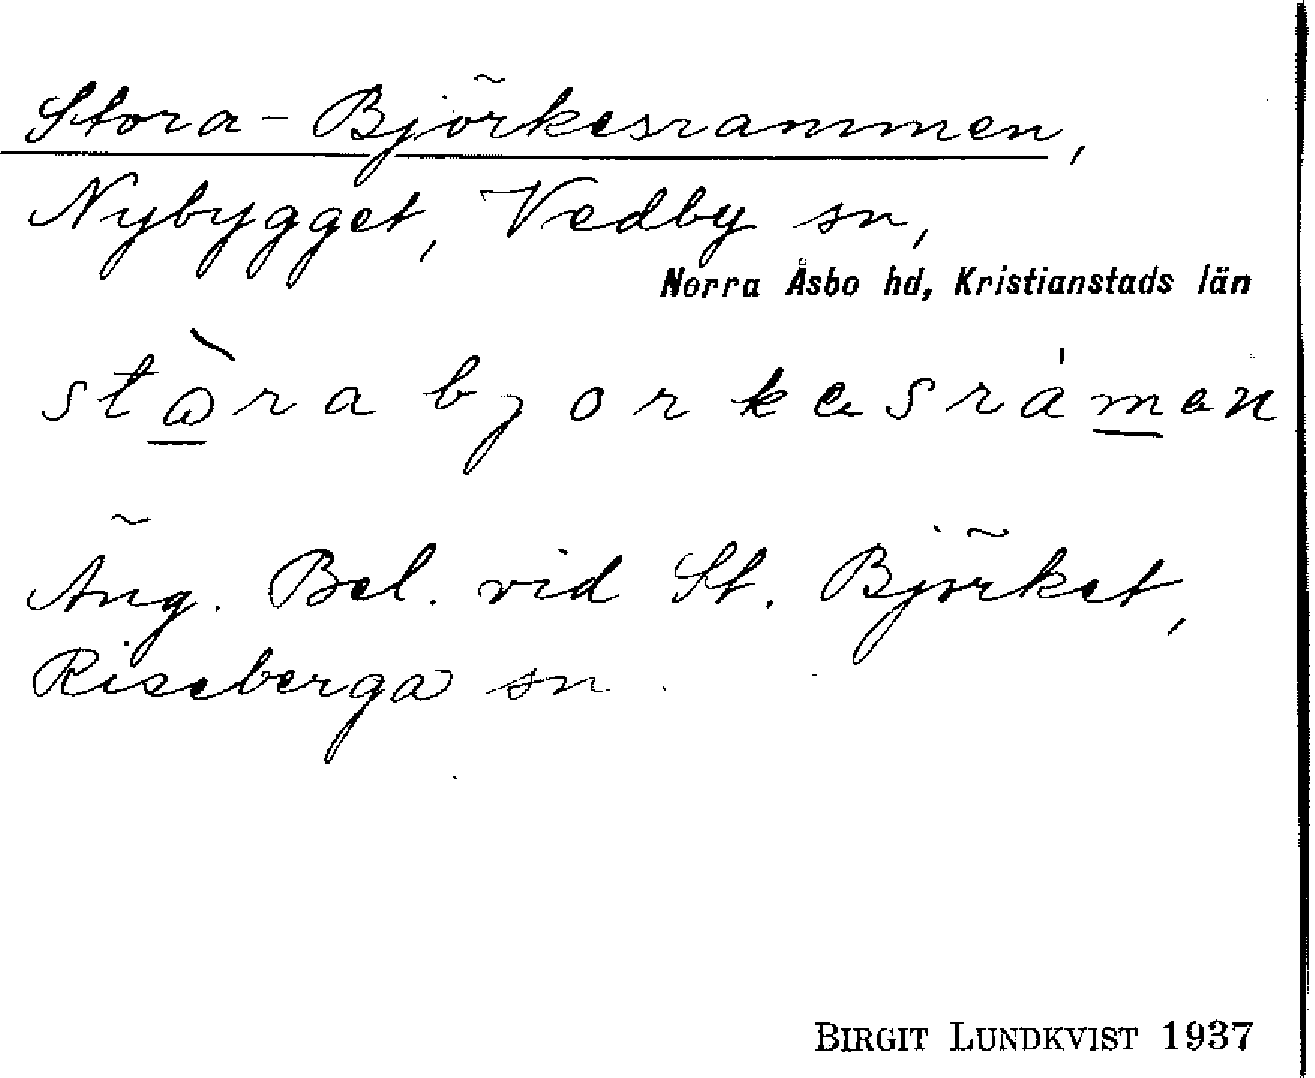 Stora-Björkesrammen,
Nybygget, Vedby sn,
Norra Åsbo hd, Kristianstads län
stòra bjorkesrámen
Äng. Bel. vid St. Björket,
Riseberga sn.
BIRGIT LUNDKVIST 1937